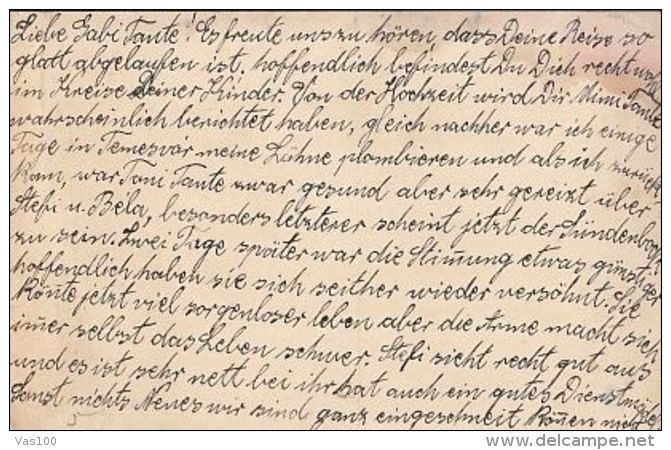 Liebe Gabi Tante! Es freute uns zu hören, dass Deine Reise so
glatt abgelaufen ist. hoffendlich befindest Du Dich recht wohl
im Kreise Deiner Kinder. Von der Hochzeit wird Dir Mimi Tante
wahrscheinlich berichtet haben, gleich nachher war ich einige
Tage in Temesvár meine Zähne plombieren und als ich zurück
kam, war Toni Tante zwar gesund aber sehr gereizt über
Stefi u. Béla, besonders letzterer scheint jetzt der Sündenbock
zu sein. Zwei Tage später war die Stim̄ung etwas günstiger
hoffendlich haben sie sich seither wieder versöhnt. Sie
kön̄te jetzt viel sorgenloser leben aber die Arme macht sich
im̄er selbst das Leben schwer. Stefi sieht recht gut aus
und es ist sehr nett bei ihr hat auch ein gutes Dienstmädel
Sonst nichts Neues wir sind ganz eingeschneit kön̄en nicht
Vas100
www.delcampe.net